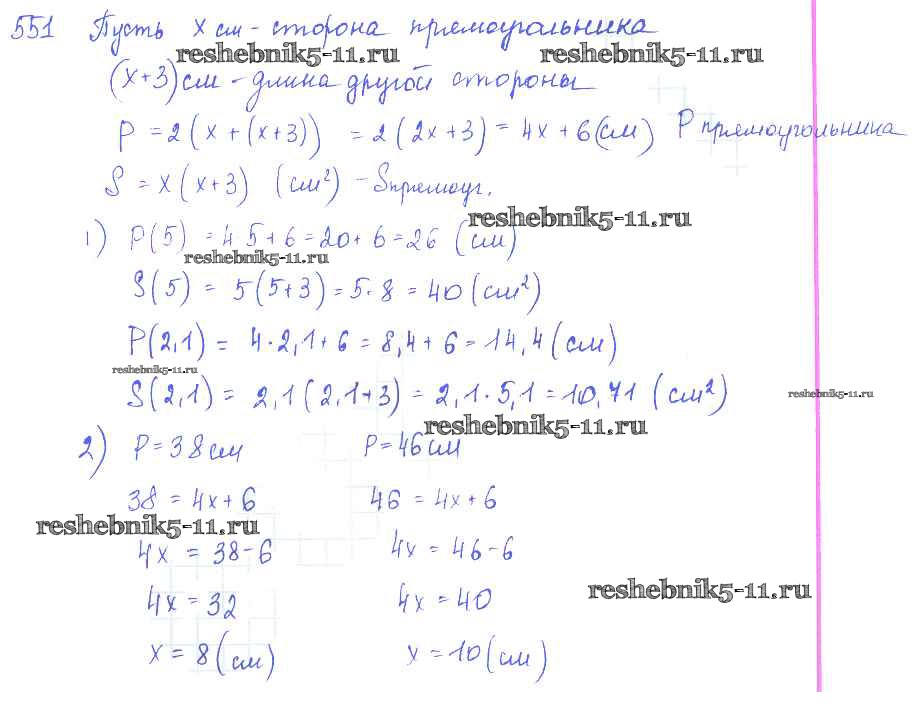 551 Пусть x см - сторона прямоугольника
reshebnik5-11.ru reshebnik5-11.ru
(x+3) см - длина другой стороны
P = 2(x + (x+3)) = 2(2x+3) = 4x + 6 (см) P прямоугольника
S = x(x+3) (см²) - Sпрямоуг.
reshebnik5-11.ru
1) P(5) = 4 5+6 = 20+6 = 26 (см)
reshebnik5-11.ru
S(5) = 5(5+3) = 5·8 = 40 (см²)
P(2,1) = 4·2,1+6 = 8,4+6 = 14,4 (см)
reshebnik5-11.ru
S(2,1) = 2,1(2,1+3) = 2,1·5,1 = 10,71 (см²)
reshebnik5-11.ru
reshebnik5-11.ru
2) P = 38 см P = 46 см
38 = 4x + 6 46 = 4x + 6
reshebnik5-11.ru
4x = 38 - 6 4x = 46 - 6
reshebnik5-11.ru
4x = 32 4x = 40
x = 8 (см) x = 10 (см)